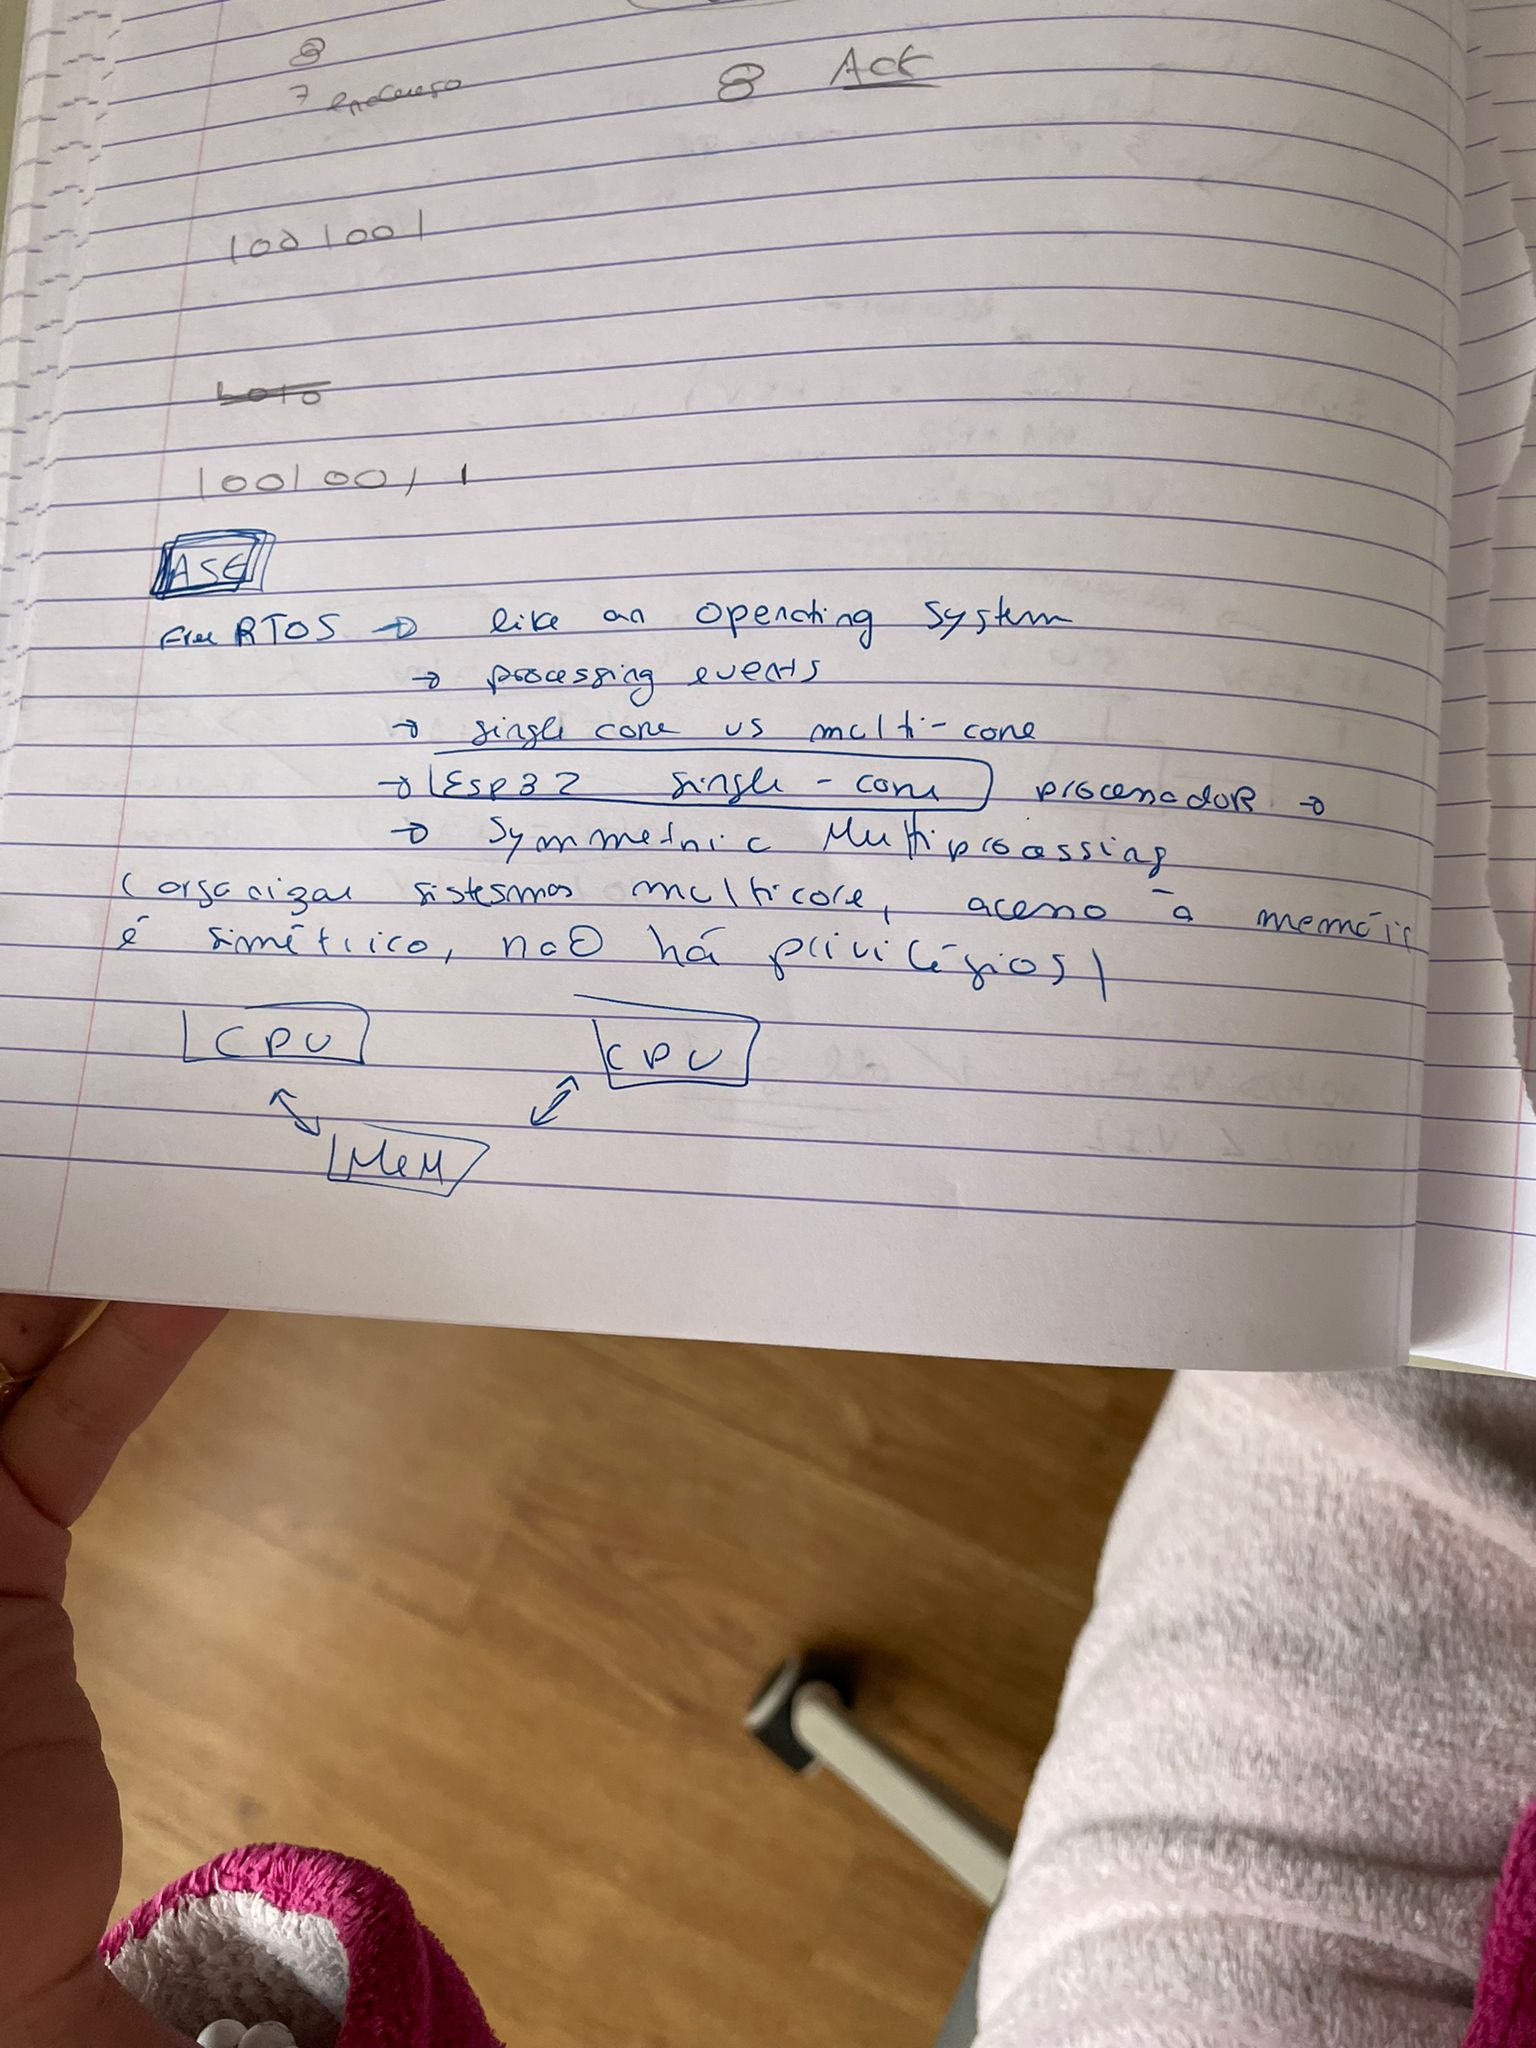 8
7 endereço
8 Ack
1001001
1001001 1
ASE
Free RTOS → like an operating system
→ processing events
→ single core vs multi-core
→ Esp32 single-core processador →
→ Symmetric Multiprocessing
(organizar sistesmas multicore, acesso à memóri
é simétrico, não há privilégios)
CPU CPU
MeM